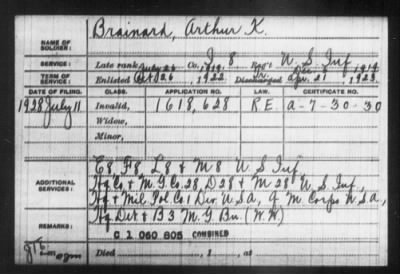 NAME OF SOLDIER: Brainard, Arthur K.
SERVICE: Late rank, Co. I, 8 Reg't U. S. Inf.
TERM OF SERVICE: July 26 1919 Dec 1919
Enlisted Oct 26, 1922 Discharged Apr. 21, 1923.
DATE OF FILING. CLASS. APPLICATION NO. LAW. CERTIFICATE NO.
1928 July 11 Invalid, 1618,628 RE. a-7-30-30
Widow,
Minor,
ADDITIONAL SERVICES: E8, F8, L8 & M8 U. S. Inf.
Hq Co & M. G. Co. 28, D28 & M28 U. S. Inf.,
Hq & Mil. Pol. Co 1 Div. U.S.A., Q. M. Corps U.S.A.,
Hq Det & B3 M. G. Bn. (W.W.)
REMARKS: C 1 060 805 COMBINED
Died , 1 , at